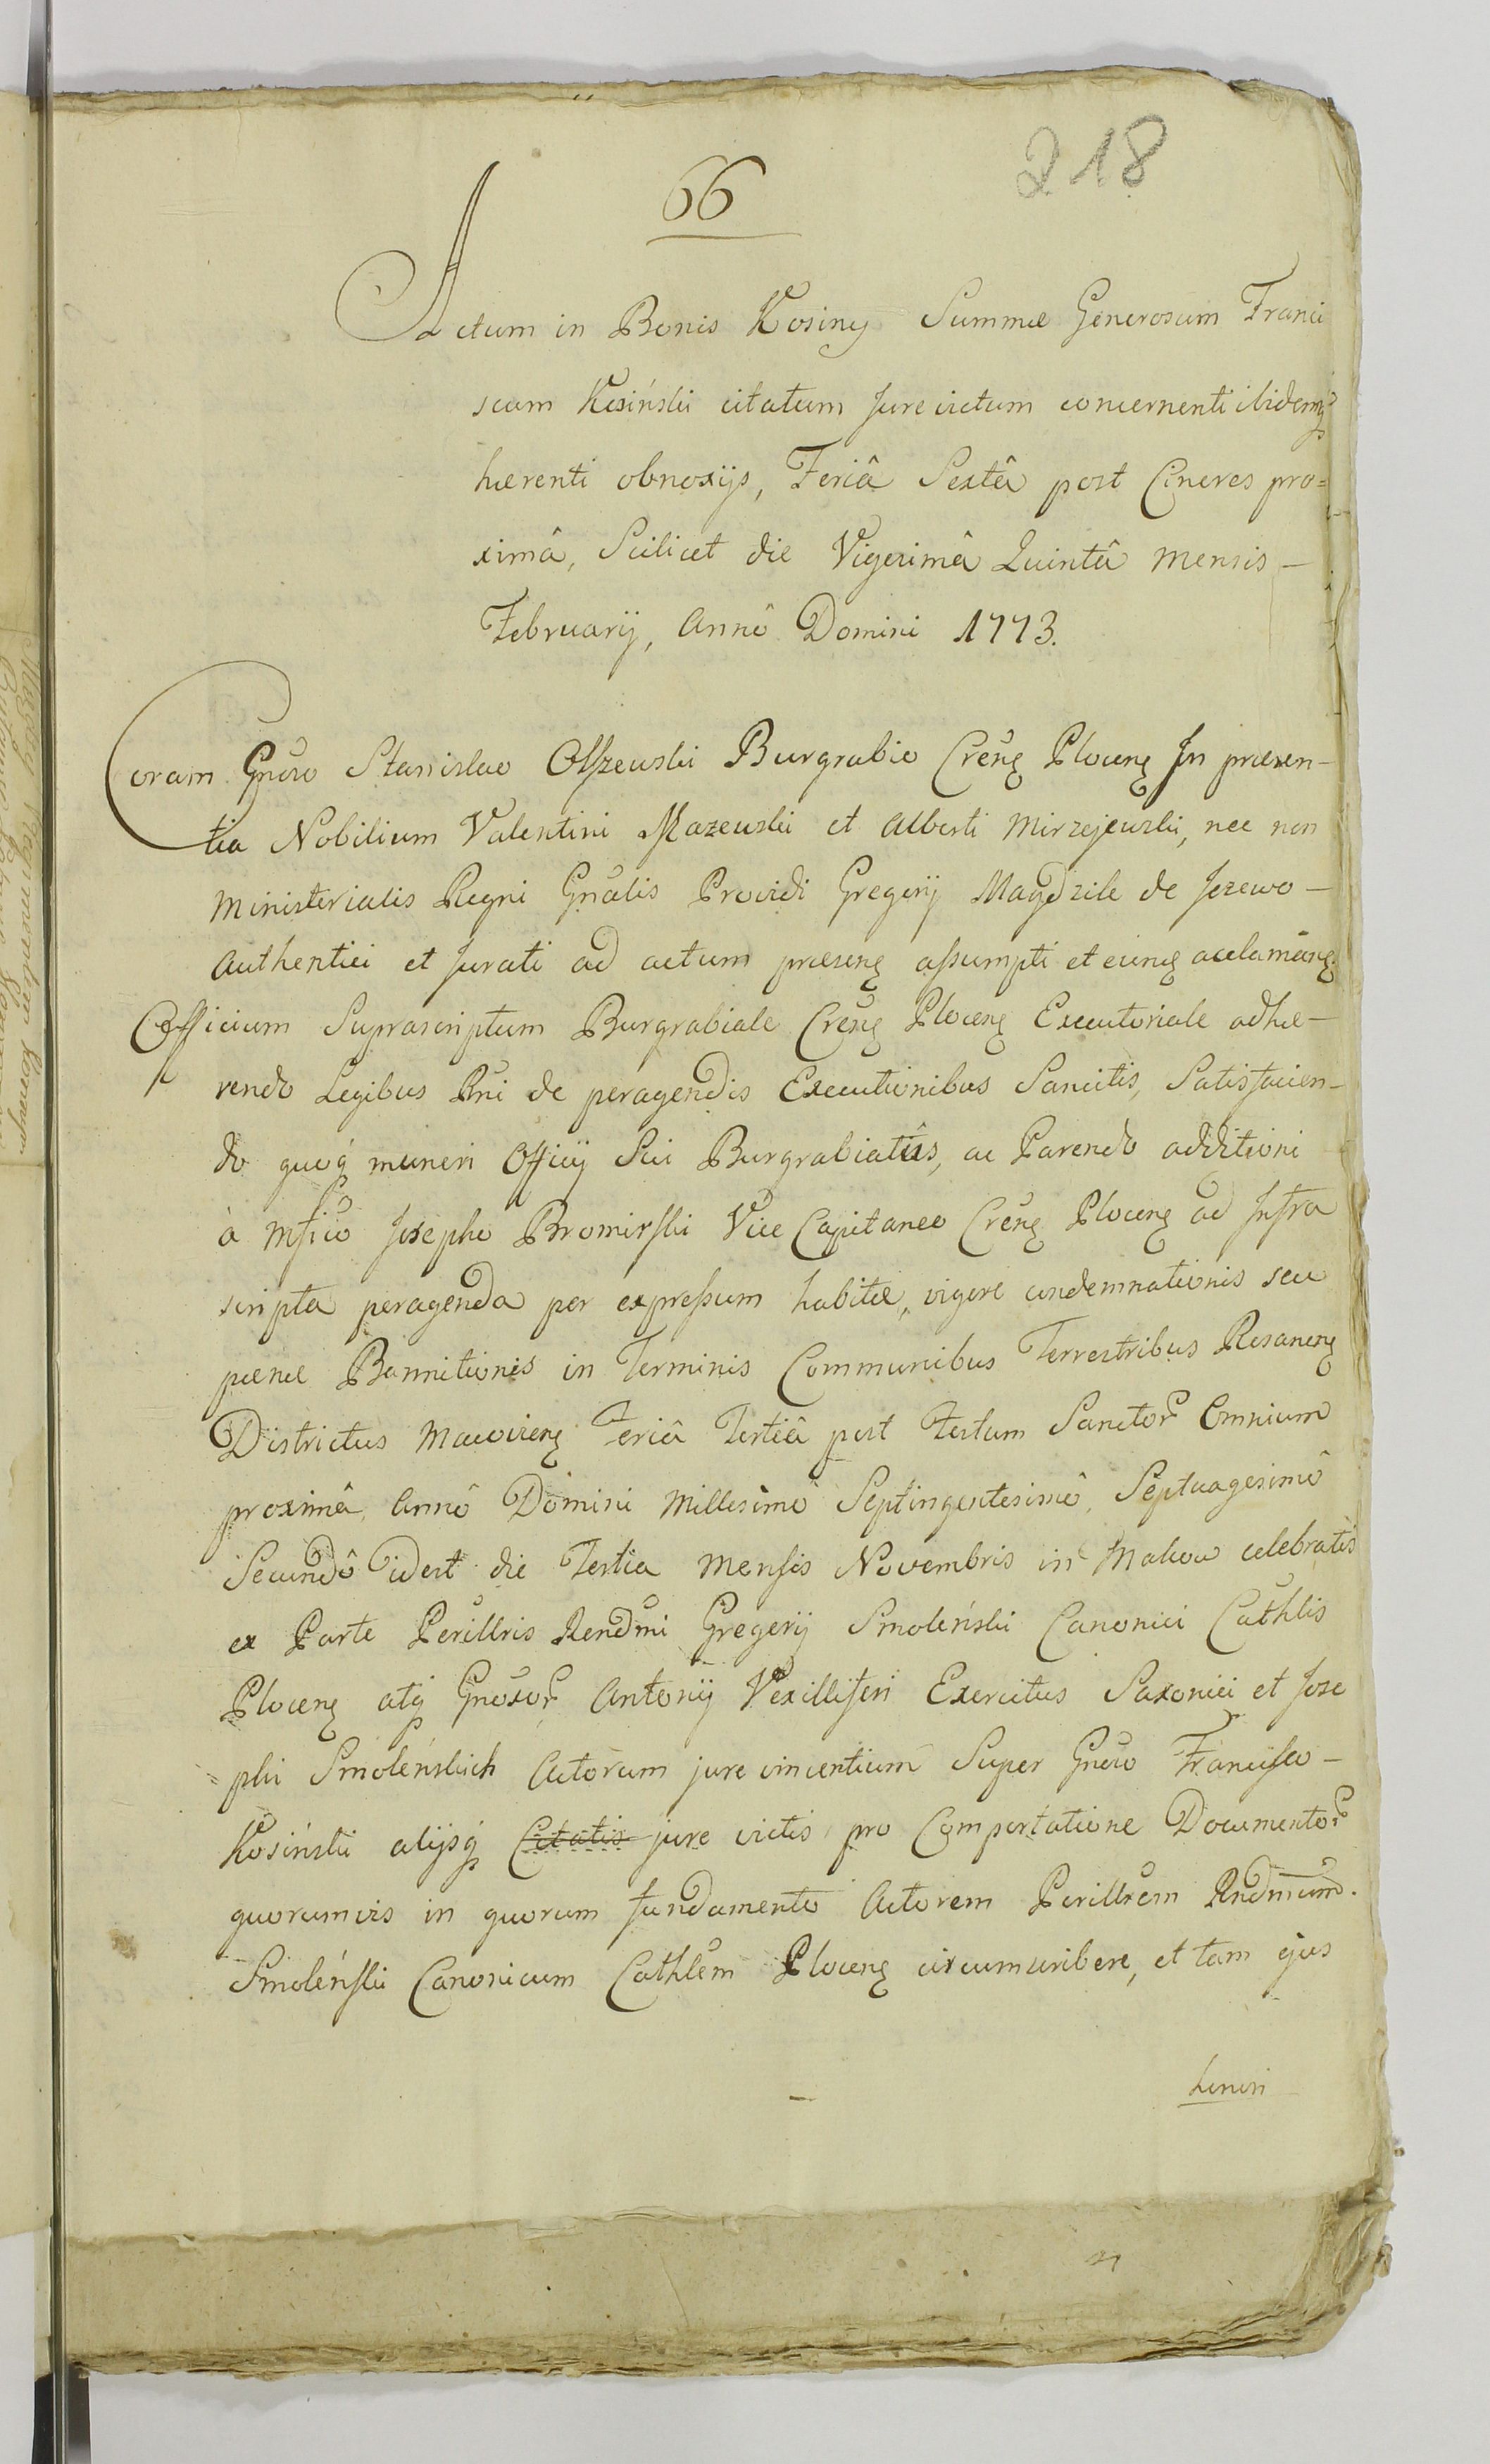 218
66
Actum in Bonis Kosiny Summæ Generosum Franci
scum Kosiński citatum Jure victum concernenti ibidemq́
hærenti obnoxijs, Feriâ Sextâ post Cineres pro=
ximâ, Scilicet die Vigesimâ Quintâ Mensis —
February, Annô Domini 1773.
Coram Gnõso Stanislao Olszewski Burgrabio Creñs Plocens In præsen-
tia Nobilium Valentini Mazewski et Alberti Mirzejewski, nec non
Ministerialis Regni Gñalis Providi Gregorij Magdzik de Jezewo —
Authentici et Jurati ad actum præsens assumpti et
Officium Suprascriptum Burgrabiale Creñs Plocens Executoriale adhæ-
rendo Legibus Rñi de peragendis Executionibus Sancitis, Satisfacien-
do quoq́ muneri Officij Sui Burgrabiatûs, ac Parendo additioni
à Mfico Josepho Bromirski Vice Capitaneo Creñs Plocens ad Infra
scripta peragenda per expressum habitæ, vigore condemnationis seu
pænæ Bannitionis in Terminis Communibus Terrestribus Rosanens
Districtus Macoviens Feriâ Tertiâ post Festum Sanctor Omnium
proximâ, Annô Domini Millesimô Septingentesimô, Septuagesimô
Secundô idest die Tertia Mensis Novembris in Makow celebratis
ex Parte Perillris Rendmi Gregorij Smoleński Canonici Cathlis
Plocens atq́ Gnõsor Antonij Vexilliferi Exercitus Saxonici et Jose
=phi Smoleńskich Actorum jure vincentium Super Gnõso Francisco —
Kosiński alijsq́ Citatis jure victis pro Comportatione Documentor
quorumvis in quorum fundamento Actorem Perillrem Rndmum.
Smoleński Canonicum Cathlem Plocens circumscribere, et tam ejus
honori